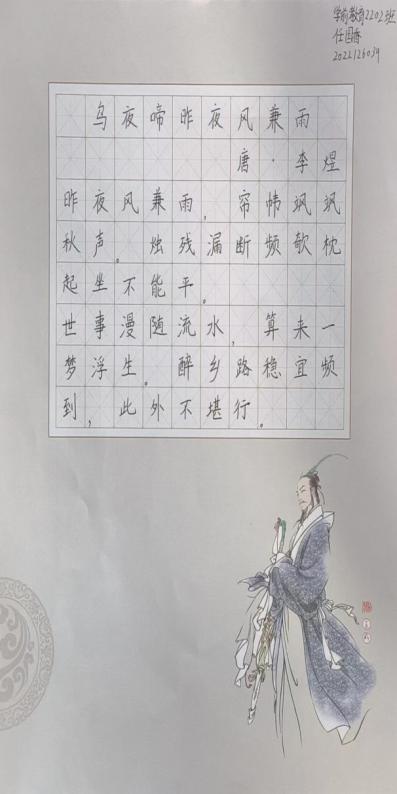 学前教育2202班
任国香
2022126039
乌夜啼昨夜风兼雨
唐·李煜
昨夜风兼雨，帘帏飒飒
秋声。烛残漏断频欹枕
起坐不能平。
世事漫随流水，算来一
梦浮生。醉乡路稳宜频
到，此外不堪行。